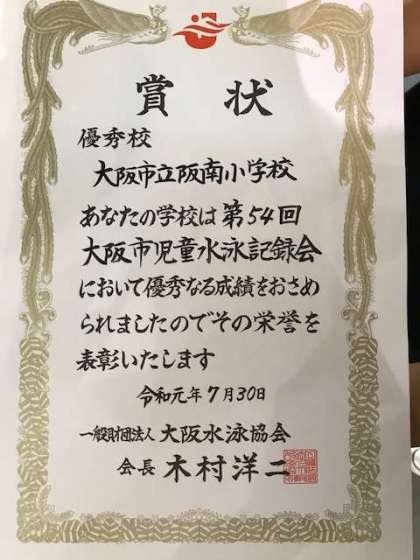 賞状
優秀校
大阪市立阪南小学校
あなたの学校は第54回
大阪市児童水泳記録会
において優秀なる成績をおさめ
られましたのでその栄誉を
表彰いたします
令和元年7月30日
一般財団法人 大阪水泳協会
会長 木村洋二